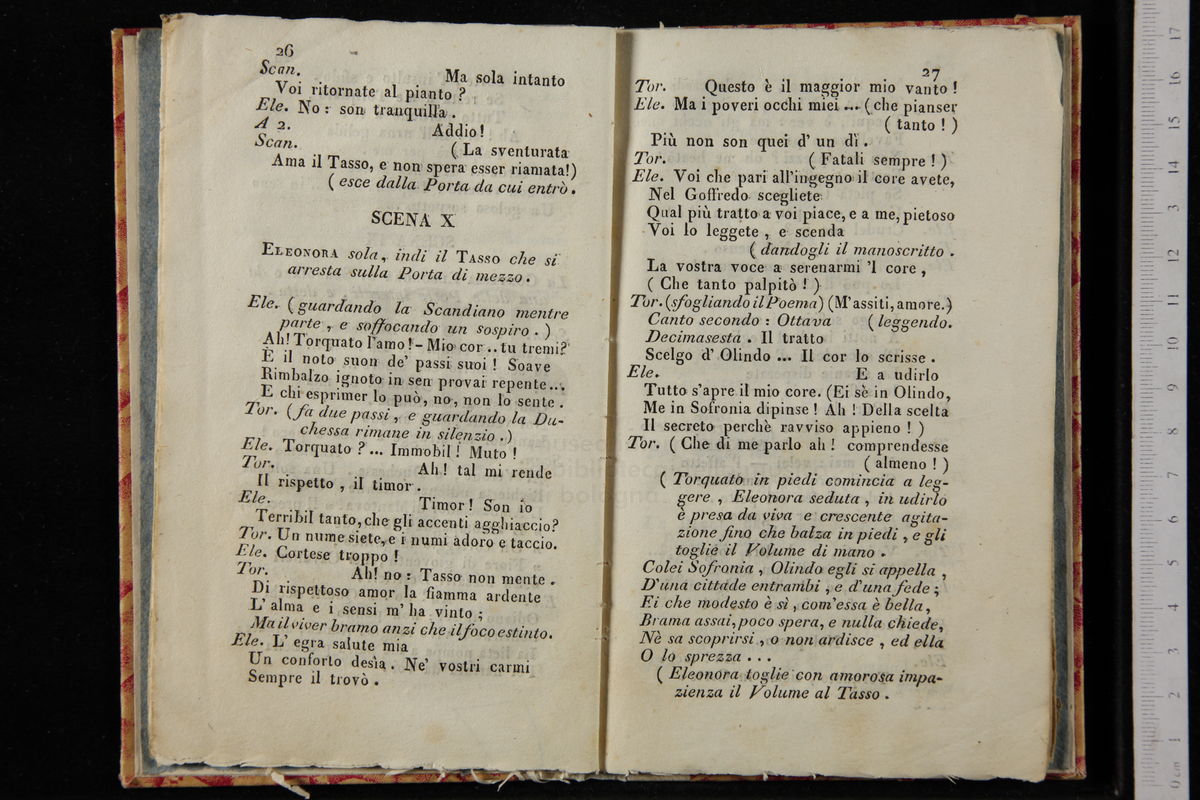 26
Scan. Ma sola intanto
Voi ritornate al pianto ?
Ele. No : son tranquilla .
A 2. Addio !
Scan. ( La sventurata
Ama il Tasso, e non spera esser riamata!)
( esce dalla Porta da cui entrò .
SCENA X
ELEONORA sola, indi il TASSO che si
arresta sulla Porta di mezzo .
Ele. ( guardando la Scandiano mentre
parte , e soffocando un sospiro . )
Ah! Torquato l'amo! - Mio cor .. tu tremi?
È il noto suon de' passi suoi ! Soave
Rimbalzo ignoto in sen provai repente ...
E chi esprimer lo può, no, non lo sente .
Tor. (fa due passi , e guardando la Du-
chessa rimane in silenzio .)
Ele. Torquato ? ... Immobil ! Muto !
Tor. Ah! tal mi rende
Il rispetto , il timor .
Ele. Timor ! Son io
Terribil tanto, che gli accenti agghiaccio?
Tor. Un nume siete, e i numi adoro e taccio.
Ele. Cortese troppo !
Tor. Ah! no : Tasso non mente .
Di rispettoso amor la fiamma ardente
L' alma e i sensi m' ha vinto ;
Ma il viver bramo anzi che il foco estinto.
Ele. L' egra salute mia
Un conforto desìa . Ne' vostri carmi
Sempre il trovò .
27
Tor. Questo è il maggior mio vanto !
Ele. Ma i poveri occhi miei ... ( che pianser
( tanto ! )
Più non son quei d' un dì .
Tor. ( Fatali sempre ! )
Ele. Voi che pari all'ingegno il core avete,
Nel Goffredo scegliete
Qual più tratto a voi piace, e a me, pietoso
Voi lo leggete , e scenda
( dandogli il manoscritto .
La vostra voce a serenarmi 'l core ,
( Che tanto palpitò ! )
Tor. (sfogliando il Poema) (M'assiti, amore.)
Canto secondo : Ottava ( leggendo.
Decimasesta . Il tratto
Scelgo d' Olindo ... Il cor lo scrisse .
Ele. E a udirlo
Tutto s'apre il mio core. (Ei sè in Olindo,
Me in Sofronia dipinse ! Ah ! Della scelta
Il secreto perchè ravviso appieno ! )
Tor. ( Che di me parlo ah ! comprendesse
( almeno ! )
( Torquato in piedi comincia a leg-
gere , Eleonora seduta , in udirlo
è presa da viva e crescente agita-
zione fino che balza in piedi , e gli
toglie il Volume di mano .
Colei Sofronia , Olindo egli si appella ,
D'una cittade entrambi , e d'una fede ;
Ei che modesto è sì , com'essa è bella ,
Brama assai, poco spera, e nulla chiede,
Nè sa scoprirsi , o non ardisce , ed ella
O lo sprezza . . .
( Eleonora toglie con amorosa impa-
zienza il Volume al Tasso .